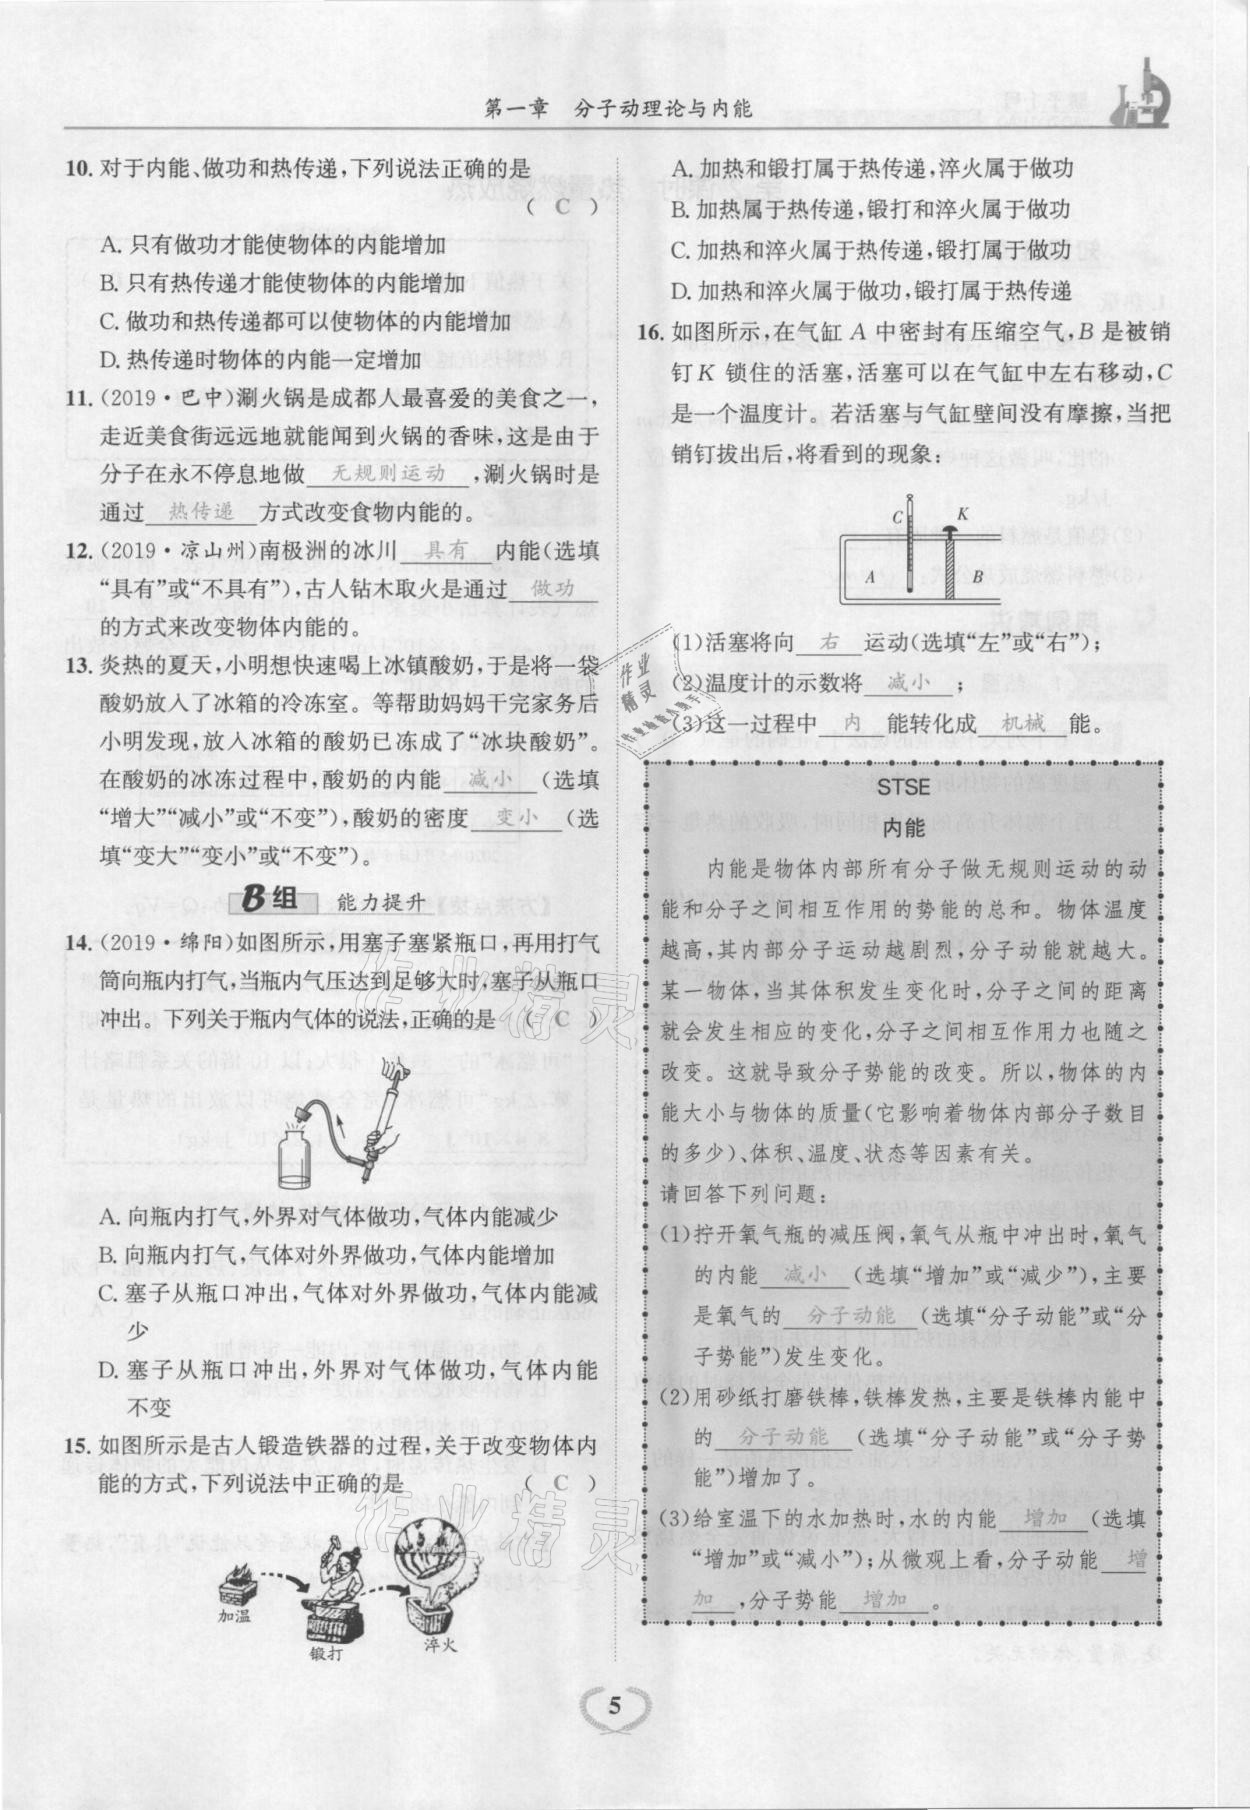 第一章 分子动理论与内能
10. 对于内能、做功和热传递,下列说法正确的是
( C )
A. 只有做功才能使物体的内能增加
B. 只有热传递才能使物体的内能增加
C. 做功和热传递都可以使物体的内能增加
D. 热传递时物体的内能一定增加
11. (2019·巴中)涮火锅是成都人最喜爱的美食之一,
走近美食街远远地就能闻到火锅的香味,这是由于
分子在永不停息地做 无规则运动 ,涮火锅时是
通过 热传递 方式改变食物内能的。
12. (2019·凉山州)南极洲的冰川 具有 内能(选填
“具有”或“不具有”),古人钻木取火是通过 做功
的方式来改变物体内能的。
13. 炎热的夏天,小明想快速喝上冰镇酸奶,于是将一袋
酸奶放入了冰箱的冷冻室。等帮助妈妈干完家务后
小明发现,放入冰箱的酸奶已冻成了“冰块酸奶”。
在酸奶的冰冻过程中,酸奶的内能 减小 (选填
“增大”“减小”或“不变”),酸奶的密度 变小 (选
填“变大”“变小”或“不变”)。
B组 能力提升
14. (2019·绵阳)如图所示,用塞子塞紧瓶口,再用打气
筒向瓶内打气,当瓶内气压达到足够大时,塞子从瓶口
冲出。下列关于瓶内气体的说法,正确的是 ( C )
A. 向瓶内打气,外界对气体做功,气体内能减少
B. 向瓶内打气,气体对外界做功,气体内能增加
C. 塞子从瓶口冲出,气体对外界做功,气体内能减
少
D. 塞子从瓶口冲出,外界对气体做功,气体内能
不变
15. 如图所示是古人锻造铁器的过程,关于改变物体内
能的方式,下列说法中正确的是 ( C )
加温
锻打
淬火
A. 加热和锻打属于热传递,淬火属于做功
B. 加热属于热传递,锻打和淬火属于做功
C. 加热和淬火属于热传递,锻打属于做功
D. 加热和淬火属于做功,锻打属于热传递
16. 如图所示,在气缸 A 中密封有压缩空气,B 是被销
钉 K 锁住的活塞,活塞可以在气缸中左右移动,C
是一个温度计。若活塞与气缸壁间没有摩擦,当把
销钉拔出后,将看到的现象:
C K
A B
(1)活塞将向 右 运动(选填“左”或“右”);
(2)温度计的示数将 减小 ;
(3)这一过程中 内 能转化成 机械 能。
STSE
内能
内能是物体内部所有分子做无规则运动的动
能和分子之间相互作用的势能的总和。物体温度
越高,其内部分子运动越剧烈,分子动能就越大。
某一物体,当其体积发生变化时,分子之间的距离
就会发生相应的变化,分子之间相互作用力也随之
改变。这就导致分子势能的改变。所以,物体的内
能大小与物体的质量(它影响着物体内部分子数目
的多少)、体积、温度、状态等因素有关。
请回答下列问题:
(1)拧开氧气瓶的减压阀,氧气从瓶中冲出时,氧气
的内能 减小 (选填“增加”或“减少”),主要
是氧气的 分子动能 (选填“分子动能”或“分
子势能”)发生变化。
(2)用砂纸打磨铁棒,铁棒发热,主要是铁棒内能中
的 分子动能 (选填“分子动能”或“分子势
能”)增加了。
(3)给室温下的水加热时,水的内能 增加 (选填
“增加”或“减小”);从微观上看,分子动能 增
加 ,分子势能 增加 。
作业精灵
作业精灵
作业精灵
5